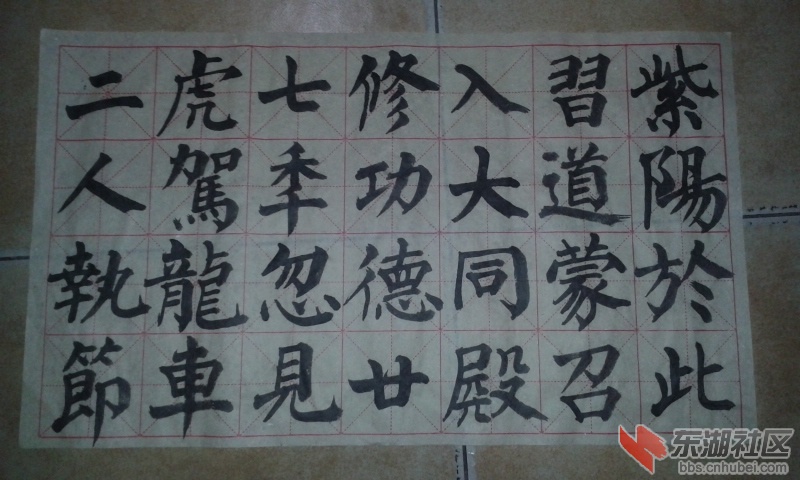 紫陽於此
習道蒙召
入大同殿
修功德廿
七秊忽見
虎駕龍車
二人執節
东湖社区
bbs.cnhubei.com